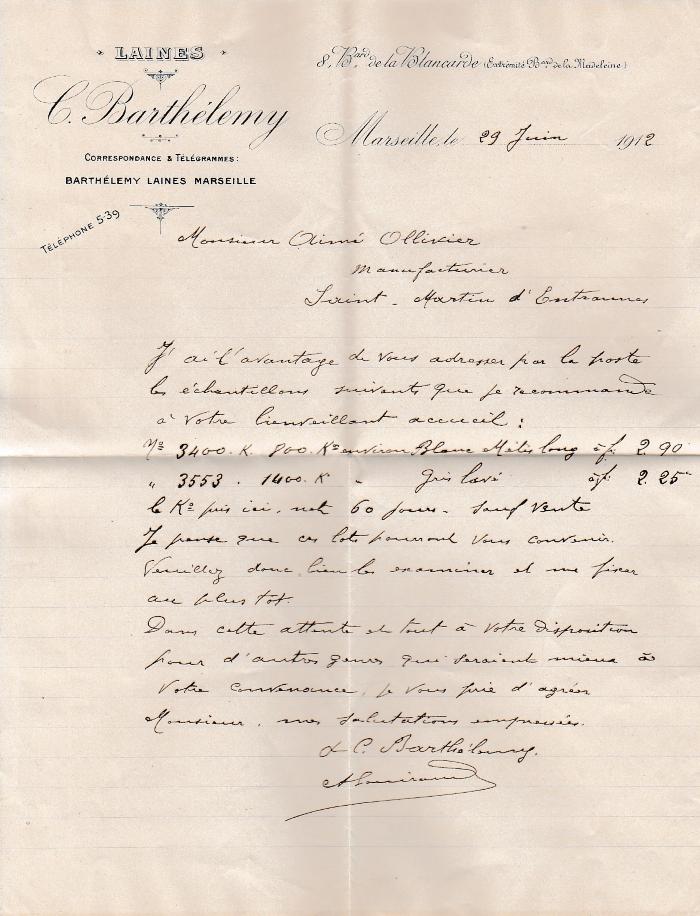 LAINES
C. Barthélemy
CORRESPONDANCE & TÉLÉGRAMMES:
BARTHÉLEMY LAINES MARSEILLE
TÉLÉPHONE 5-39
8, Bard de la Blancarde (Extrémité Bard de la Madeleine)
Marseille, le 29 Juin 1912
Monsieur Aimé Ollivier
Manufacturier
Saint-Martin d'Entraunes
J'ai l'avantage de vous adresser par la poste
les échantillons suivants que je recommande
à votre bienveillant accueil :
No 3400. K. 800. Ko environ Blanc Métis long à f. 2.90
" 3553. 1400. K " Gris lavé à f. 2.25
le Ko pris ici, net 60 jours. Sauf vente
Je pense que ces lots pourront vous convenir.
Veuillez donc bien les examiner et me fixer
au plus tot.
Dans cette attente et tout à votre disposition
pour d'autres genres qui seraient mieux à
votre convenance, je vous prie d'agréer
Monsieur, mes salutations empressées.
C. Barthélemy.